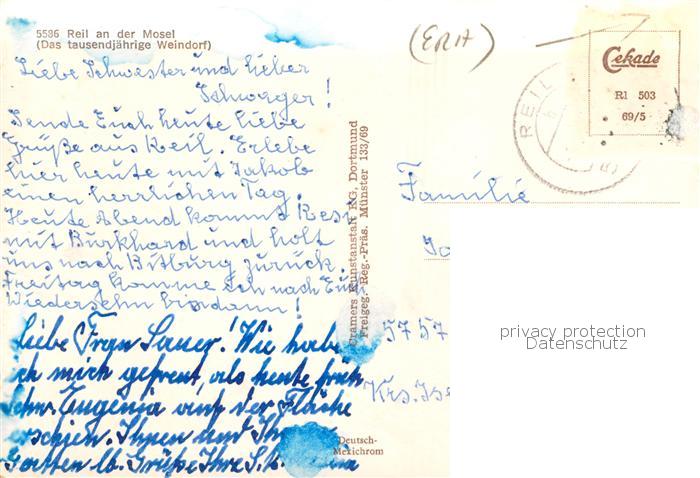 5586 Reil an der Mosel
(Das tausendjährige Weindorf)
(ERH)
Cekade
R1 503
69/5
REIL
Liebe Schwester und lieber
Schwager!
Sende Euch heute liebe
Grüße aus Reil. Erlebe
hier heute mit Jakob
einen herrlichen Tag.
Heute Abend kommt Resi
mit Burkhard und holt
uns nach Bitburg zurück.
Freitag komme ich nach Euch
Wiedersehn bis dann!
Liebe Frau Sauer! Wie habe
ich mich gefreut, als heute früh
Schw. Eugenia auf der Fläche
erschien. Ihnen und Ihrem
Gatten lb. Grüße Ihre S. M.
Kramers Kunstanstalt KG, Dortmund
Freigeg. Reg.-Präs. Münster 133/69
Familie
5757
Krs. Ise
privacy protection
Datenschutz
Deutsch-
Mexichrom